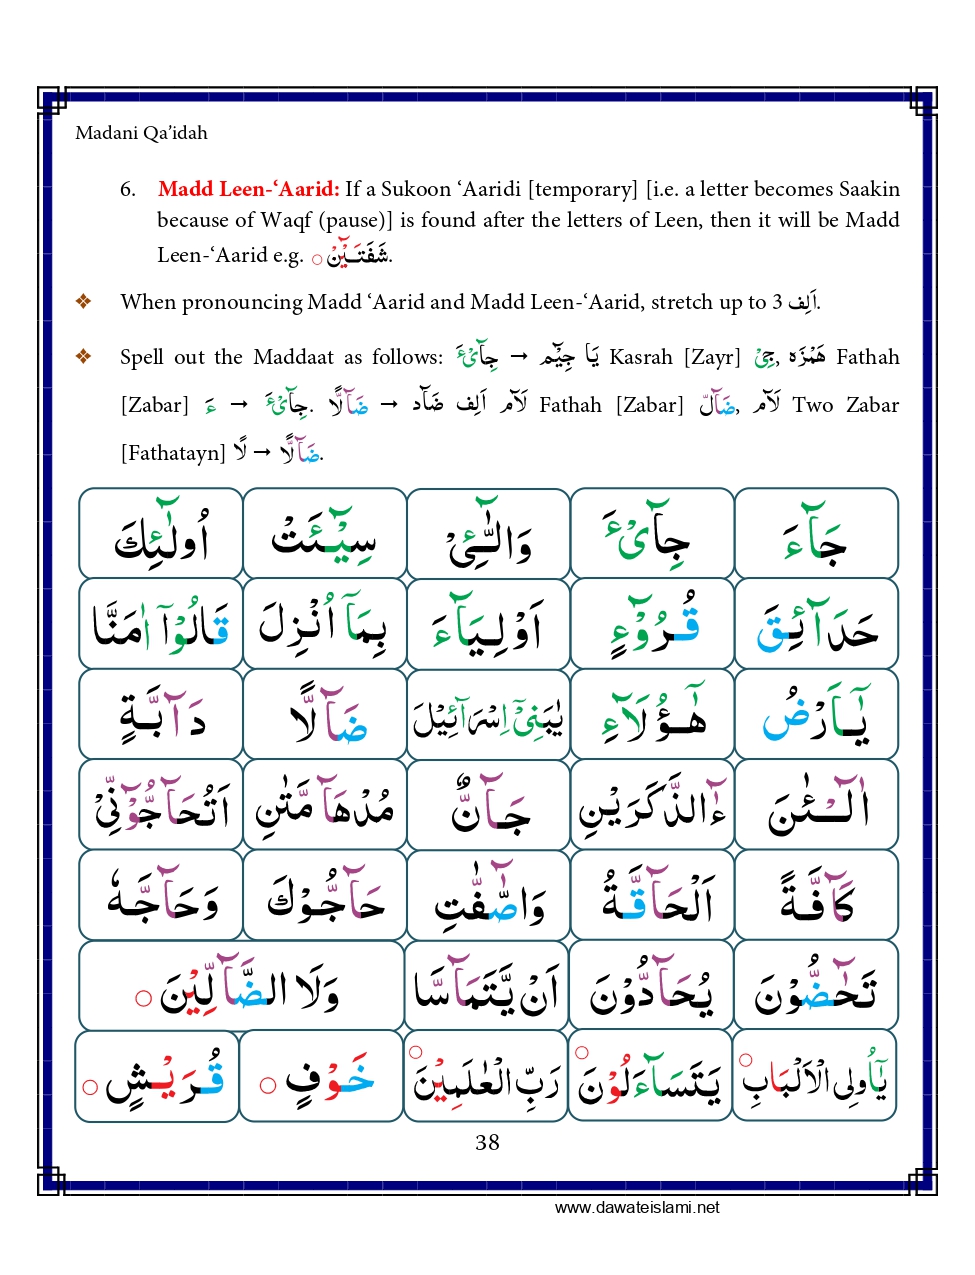 Madani Qa’idah
6. Madd Leen-‘Aarid: If a Sukoon ‘Aaridi [temporary] [i.e. a letter becomes Saakin
because of Waqf (pause)] is found after the letters of Leen, then it will be Madd
Leen-‘Aarid e.g. شَفَتَـيْٓنْ ○.
❖ When pronouncing Madd ‘Aarid and Madd Leen-‘Aarid, stretch up to 3 اَلِف.
❖ Spell out the Maddaat as follows: جِآىْٓءَ → جِيْٓم يَا Kasrah [Zayr] جِىْ, هَمْزَه Fathah
[Zabar] ءَ → جِآىْٓءَ. ضَآلًّا → ضَآد اَلِف لَآم Fathah [Zabar] ضَآلّ, لَآم Two Zabar
[Fathatayn] لًا → ضَآلًّا.
جَآءَ جِآىْٓءَ وَالّٰٓـِٔىْ سِيْٓـَٔتْ اُولٰٓئِكَ
حَدَآئِقَ قُرُوْٓءٍ اَوْلِـيَآءَ بِمَآ اُنْزِلَ قَالُوْٓا اٰمَنَّا
يٰٓاَرْضُ هٰٓؤُلَآءِ يٰبَنِىْٓ اِسْرَآئِيْلَ ضَآلًّا دَآبَّةٍ
اٰلْـٰٓـئٰنَ ءٰٓالذَّكَرَيْنِ جَآنٌّ مُدْهَآمَّتٰنِ اَتُحَآجُّوْٓنِّىْ
كَآفَّةً اَلْحَآقَّةُ وَاصّٰٓفّٰتِ حَآجُّوْكَ وَحَآجَّهٗ
تَحٰٓضُّوْنَ يُحَآدُّوْنَ اَنْ يَّتَمَآسَّا وَلَا الضَّآلِّيْنَ ○
يٰٓاُولِى الْاَلْبَابِ ○ يَتَسَآءَلُوْنَ ○ رَبِّ الْعٰلَمِيْنَ ○ خَوْفٍ ○ قُرَيْشٍ ○
38
www.dawateislami.net